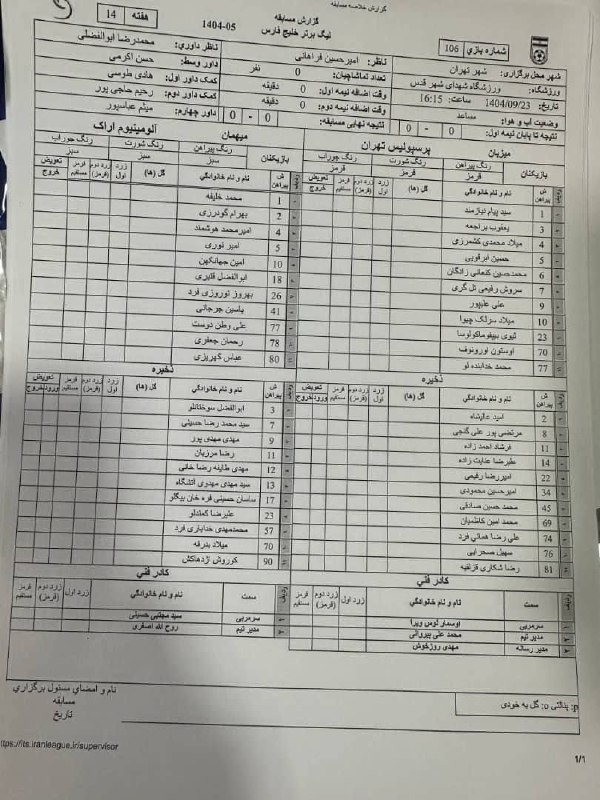 گزارش خلاصه مسابقه
گزارش مسابقه
لیگ برتر خلیج فارس
1404-05
هفته 14
شماره بازي 106
شهر محل برگزاري: شهر تهران
ورزشگاه: ورزشگاه شهدای شهر قدس
تاریخ: 1404/09/23 ساعت: 16:15
وضعیت آب و هوا: مساعد
نتیجه تا پایان نیمه اول: 0 - 0
ناظر: امیرحسین فراهانی
تعداد تماشاچیان: 0 نفر
وقت اضافه نیمه اول: 0 دقیقه
وقت اضافه نیمه دوم: 0 دقیقه
نتیجه نهایی مسابقه: 0 - 0
ناظر داوري: محمدرضا ابوالفضلی
داور وسط: حسن اکرمی
کمک داور اول: هادی طوسی
کمک داور دوم: رحیم حاجی پور
داور چهارم: میثم عباسپور
میزبان پرسپولیس تهران
بازیکنان رنگ پیراهن رنگ شورت رنگ جوراب
قرمز قرمز قرمز
ش پیراهن نام و نام خانوادگي گل (ها) زرد اول زرد دوم (قرمز) قرمز مستقیم تعویض خروج
1 سید پیام نیازمند
3 یعقوب براجعه
4 میلاد محمدی کشمرزی
5 حسین ابرقویی
6 محمدحسین کنعانی زادگان
7 سروش رفیعی تل گری
9 علی علیپور
10 میلاد سرلک چیوا
23 تیوی بیفوماکولوسا
70 اوستون اورونوف
77 محمد خدابنده لو
ذخیره
ش پیراهن نام و نام خانوادگي گل (ها) زرد اول زرد دوم (قرمز) قرمز مستقیم تعویض ورود خروج
2 امید عالیشاه
8 مرتضی پور علی گنجی
11 فرشاد احمد زاده
14 علیرضا عنایت زاده
22 امیررضا رفیعی
34 امیرحسین محمودی
45 محمد حسین صادقی
69 محمد امین کاظمیان
74 علی رضا همائی فرد
76 سهیل صحرایی
81 رضا شکاری قزلقیه
کادر فني
سمت نام و نام خانوادگي زرد اول زرد دوم (قرمز) قرمز مستقیم
سرمربی اوسمار لوس ویرا
مدیر تیم محمد علی پیروانی
مدیر رسانه مهدی روزخوش
میهمان آلومینیوم اراک
بازیکنان رنگ پیراهن رنگ شورت رنگ جوراب
سبز سبز سبز
ش پیراهن نام و نام خانوادگي گل (ها) زرد اول زرد دوم (قرمز) قرمز مستقیم تعویض خروج
1 محمد خلیفه
2 بهرام گودرزی
4 امیرمحمد هوشمند
5 امیر نوری
10 امین جهانکهن
18 ابوالفضل قنبری
26 بهروز نوروزی فرد
41 یاسین جرجانی
77 علی وطن دوست
78 رحمان جعفری
80 عباس کهریزی
ذخیره
ش پیراهن نام و نام خانوادگي گل (ها) زرد اول زرد دوم (قرمز) قرمز مستقیم تعویض ورود خروج
3 ابوالفضل سوخانلو
7 سید محمد رضا حسینی
9 مهدی مهدی پور
11 رضا مرزبان
12 مهدی طاینه رضا خانی
13 سید مهدی مهدوی آتشگاه
17 ساسان حسینی فره خان بیگلو
23 علیرضا کمندلو
57 محمدمهدی خدایاری فرد
70 میلاد بدرقه
90 کوروش آژدهاکش
کادر فني
سمت نام و نام خانوادگي زرد اول زرد دوم (قرمز) قرمز مستقیم
سرمربی سید مجتبی حسینی
مدیر تیم روح الله اصغری
p: پنالتی o: گل به خودی
نام و امضاي مسئول برگزاري
مسابقه
تاریخ
ttps://its.iranleague.ir/supervisor
1/1